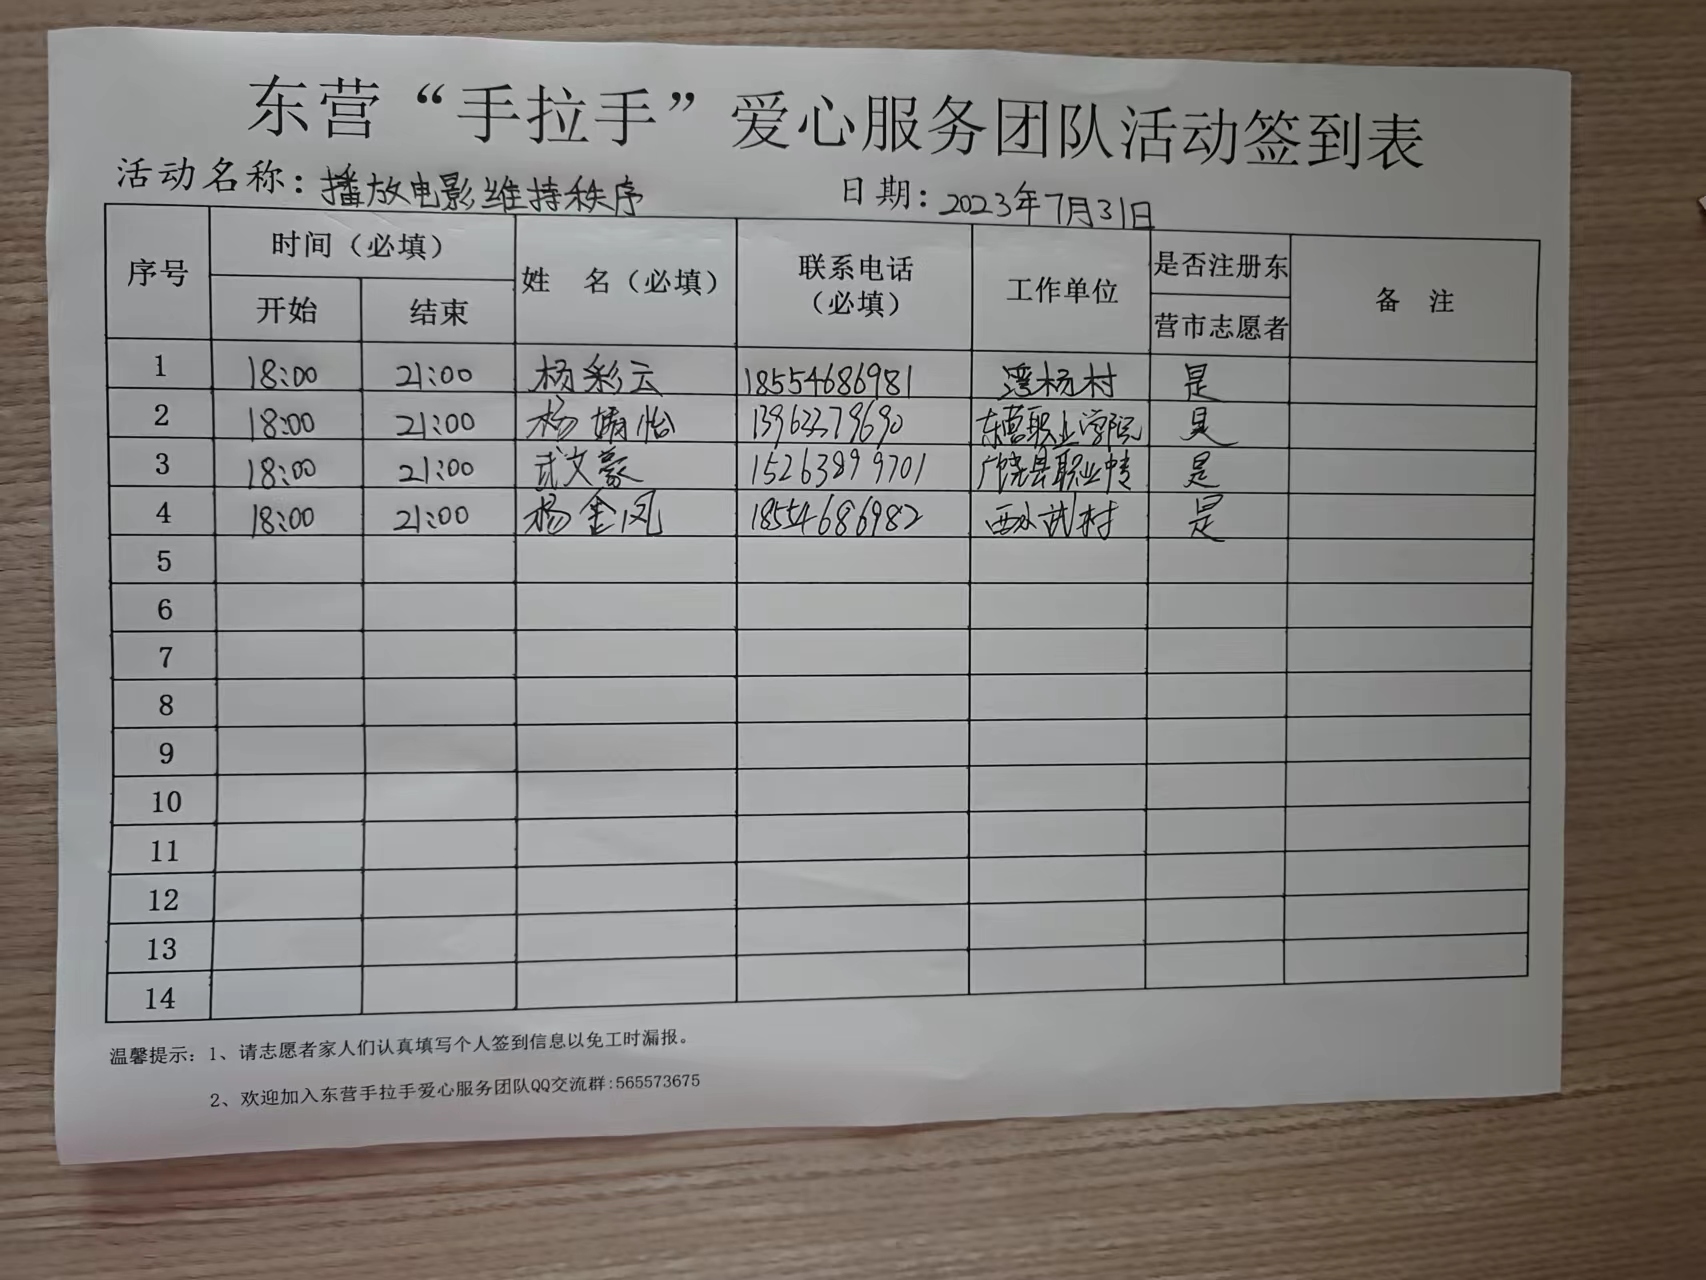 东营“手拉手”爱心服务团队活动签到表
活动名称：播放电影维持秩序 日期：2023年7月31日
序号 时间（必填） 姓 名（必填） 联系电话（必填） 工作单位 是否注册东营市志愿者 备 注
开始 结束
1 18:00 21:00 杨彩云 18554686981 湾杨村 是
2 18:00 21:00 杨婧怡 13963379690 东营职业学院 是
3 18:00 21:00 武文豪 15263899701 广饶县职业中专 是
4 18:00 21:00 杨金凤 18554686982 西水武村 是
5
6
7
8
9
10
11
12
13
14
温馨提示：1、请志愿者家人们认真填写个人签到信息以免工时漏报。
2、欢迎加入东营手拉手爱心服务团队QQ交流群:565573675